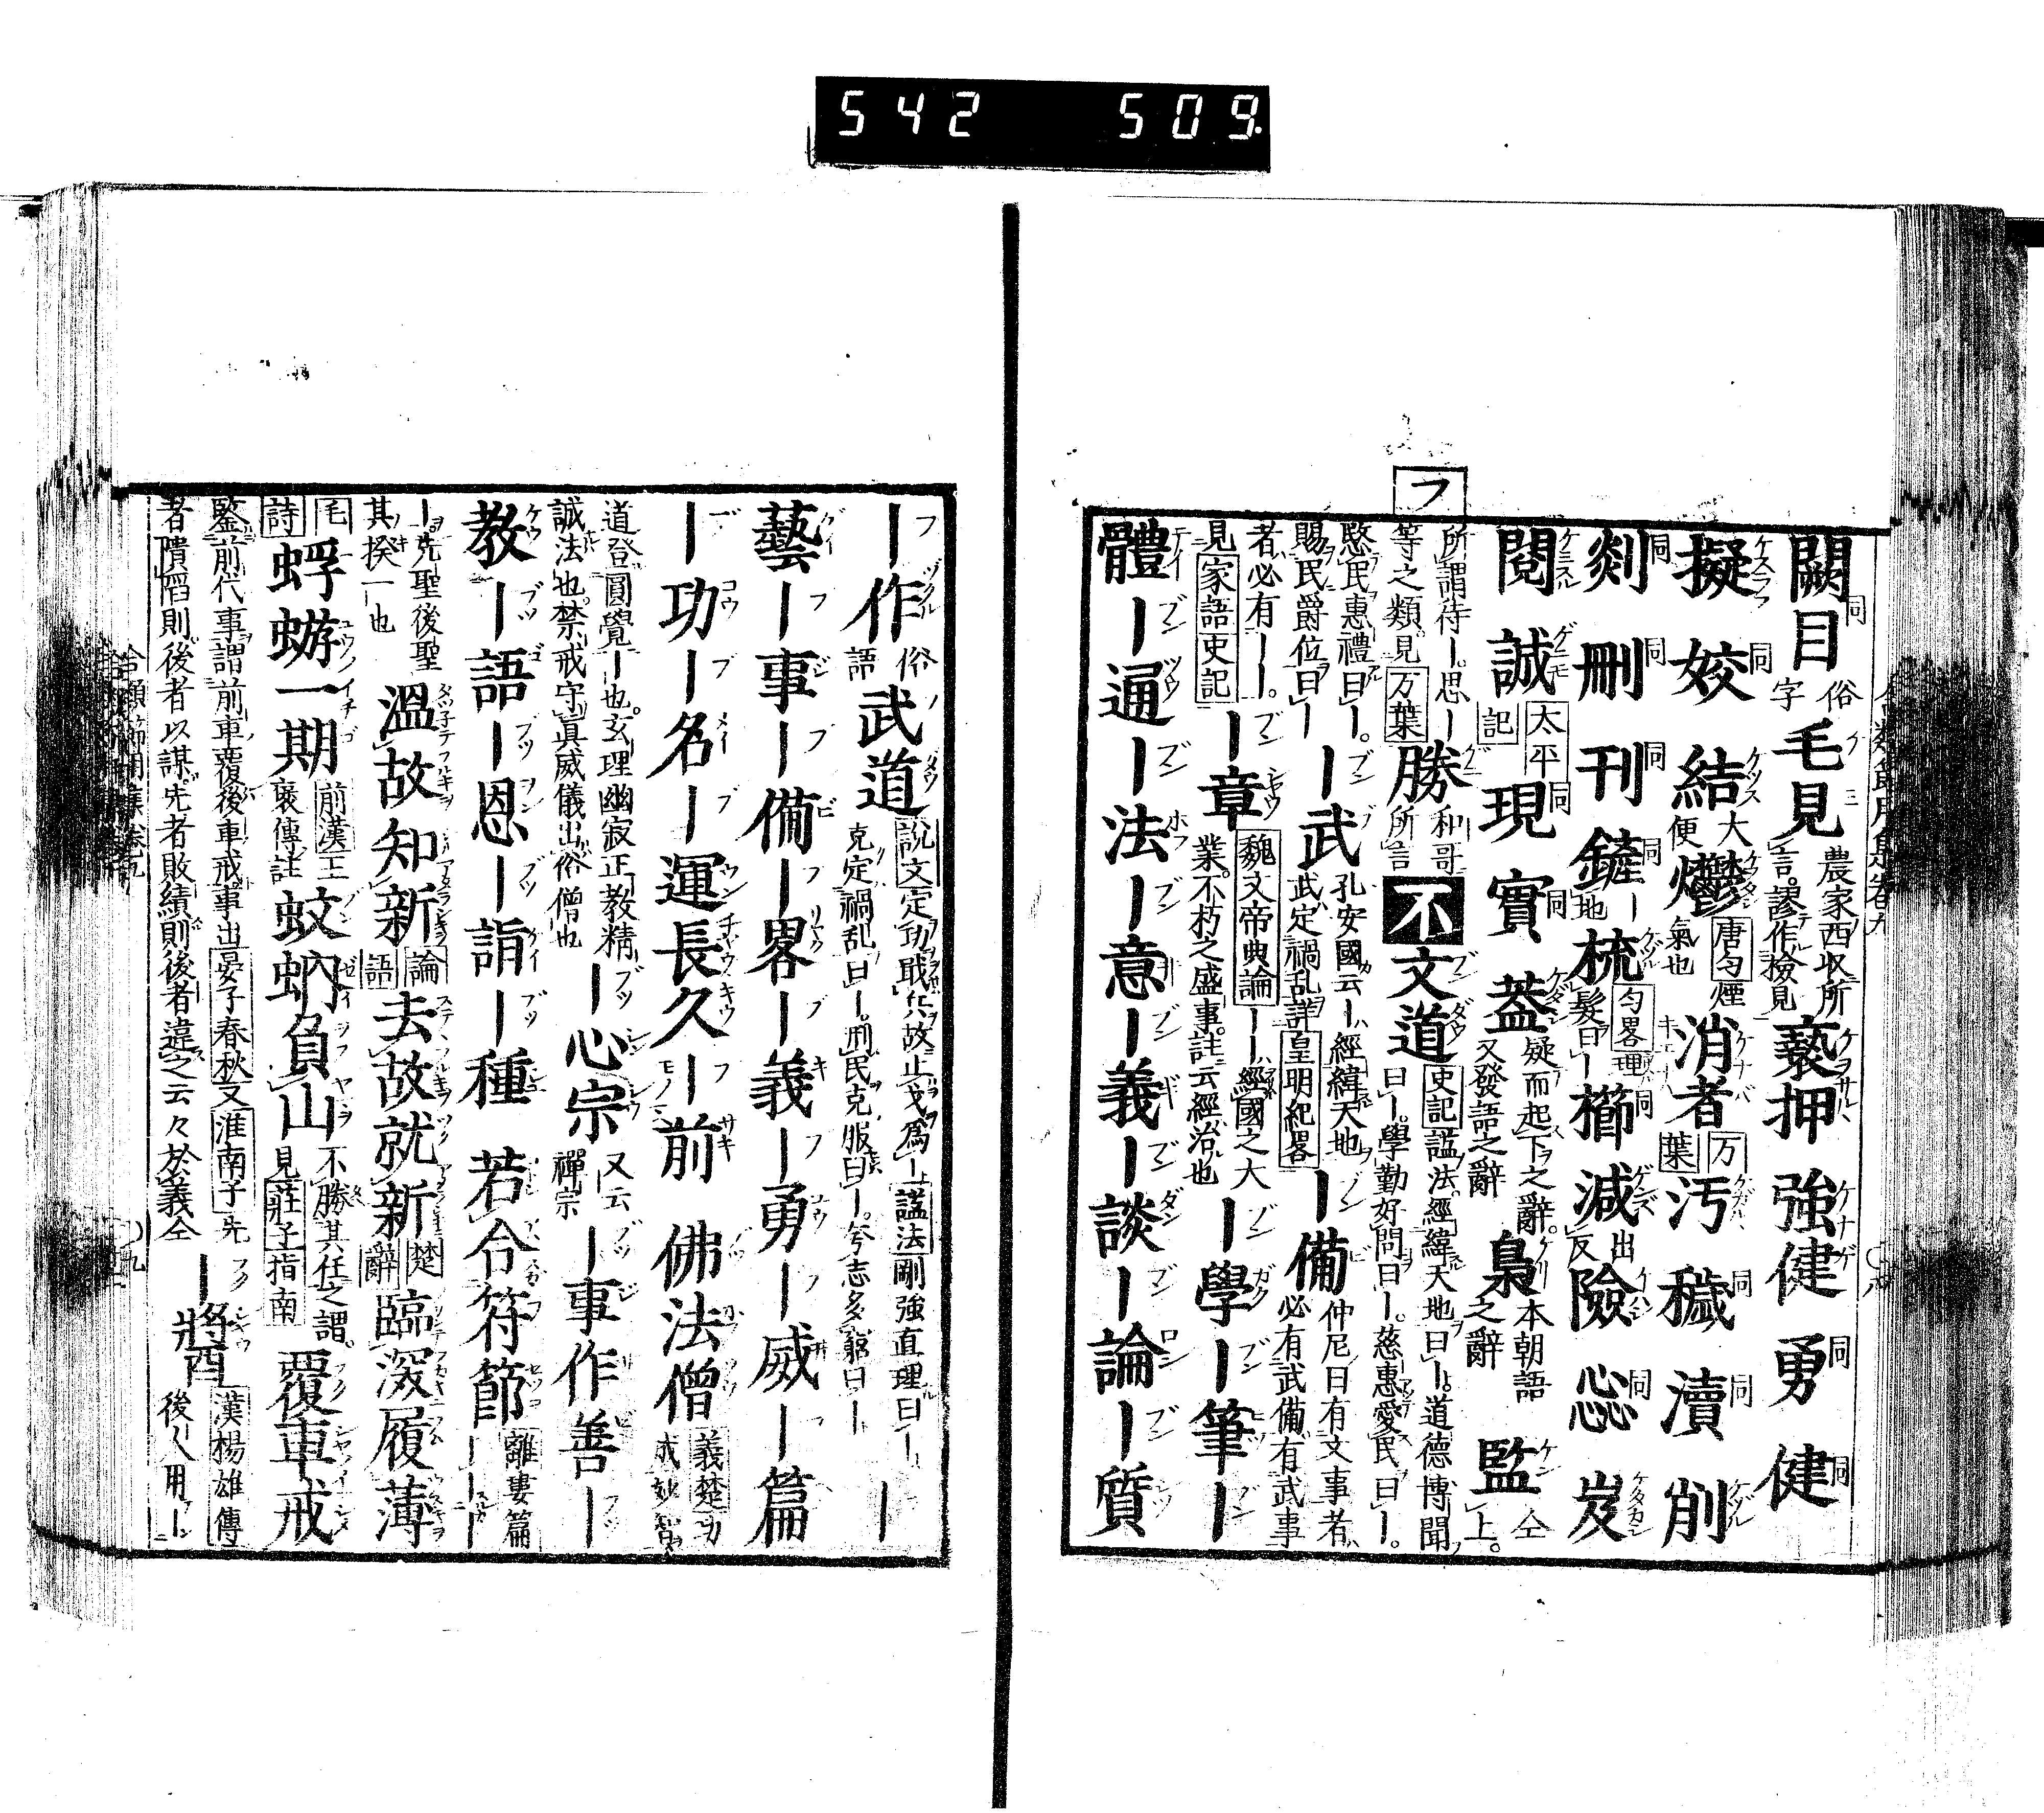 542 509.
フ
闕目 俗字 毛見 農家西収所言。謬作檢見 褻押 強健 勇 健
擬 姣 結 大便 鬱 唐匀 煙氣也 消者 万葉 汚 穢 瀆 削
剡 刪 刊 鏟 ー地 梳 匀畧 理髮曰ー 櫛 減 出反 險 忩 岌
閲 誠 太平記 現 實 蓋 疑而起下之辭。又發語之辭 梟 本朝語之辭 監 仝上。
所謂待ー。思ー等之類見 万葉 勝 和哥所言 不 文道 史記 謚法。經緯天地曰ー。道德博聞曰ー。學勤好問曰ー。慈惠愛民曰ー。
愍民惠禮曰ー。賜民爵位曰ー ー武 孔安國云ー經緯天地武定禍乱詳 皇明紀畧 ー備 仲尼曰有文事者必有武備有武事
者必有ーー。見 家語 史記 ー章 魏文帝典論 ーー經國之大業。不朽之盛事。註云經治也 ー學ー筆ー
體ー通ー法ー意ー義ー談ー論ー質
ー作 俗語 武道 説文 定功戢兵故止戈爲ー 謚法 剛強直理曰ー克定禍乱曰ー。刑民克服曰ー。夸志多窮曰ー ー
藝ー事ー備ー畧ー義ー勇ー威ー篇
ー功ー名ー運長久ー前 佛法僧 義楚
道登圓覺ー也。玄理幽寂正教精誠法也。禁戒守眞威儀出俗僧也 ー心宗 又云禪宗 ー事作善ー
教ー語ー恩ー詣ー種 若合符節 離婁篇
ー。先聖後聖其揆一也 溫故知新 論語 去故就新 楚辭 臨深履薄
毛詩 蜉蝣一期 前漢王襃傳註 蚊蚋負山 不勝其任之謂。見 莊子 指南 覆車戒
鑒前代事謂前車覆後車戒事出 晏子春秋 又 淮南子 先者隤陷則後者以謀。先者敗績則後者違之云々於義仝 ー醬 漢楊雄傳 後人用